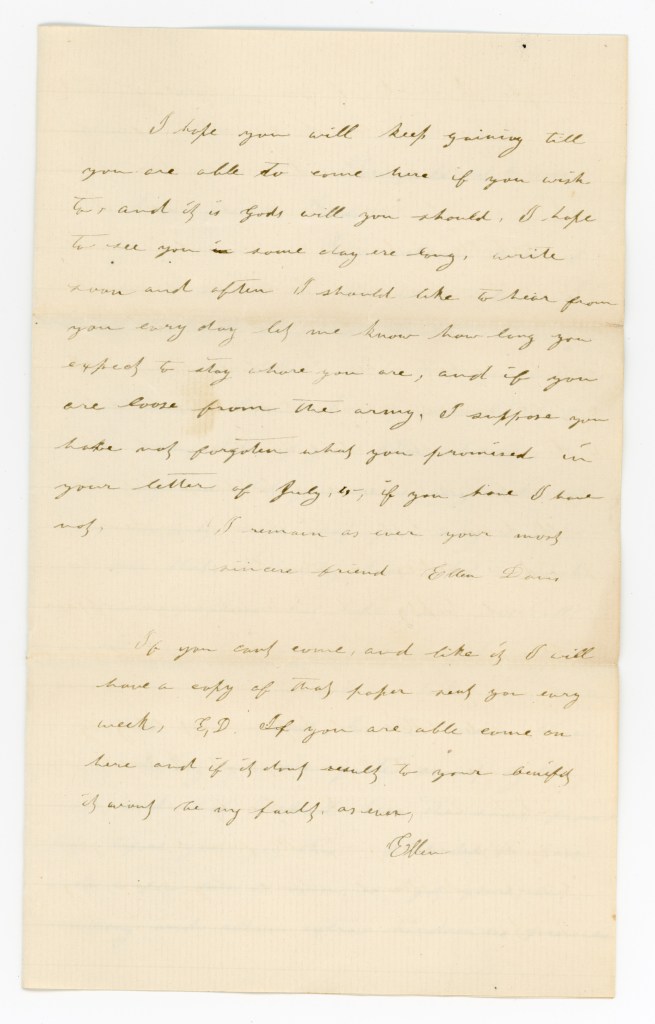 I hope you will keep gaining till
you are able to come here if you wish
to, and it is Gods will you should. I hope
to see you in some day ere long, write
soon and often I should like to hear from
you evry day let me know how long you
expect to stay where you are, and if you
are loose from the army. I suppose you
have not forgoten what you promised in
your letter of July, 4, if you have I have
not.
I remain as ever your most
sincere friend Ellen Davis
If you cant come, and like it I will
have a copy of that paper sent you evry
week, E,D. If you are able come on
here and if it dont result to your benifit
it wont be my fault. as ever,
Ellen